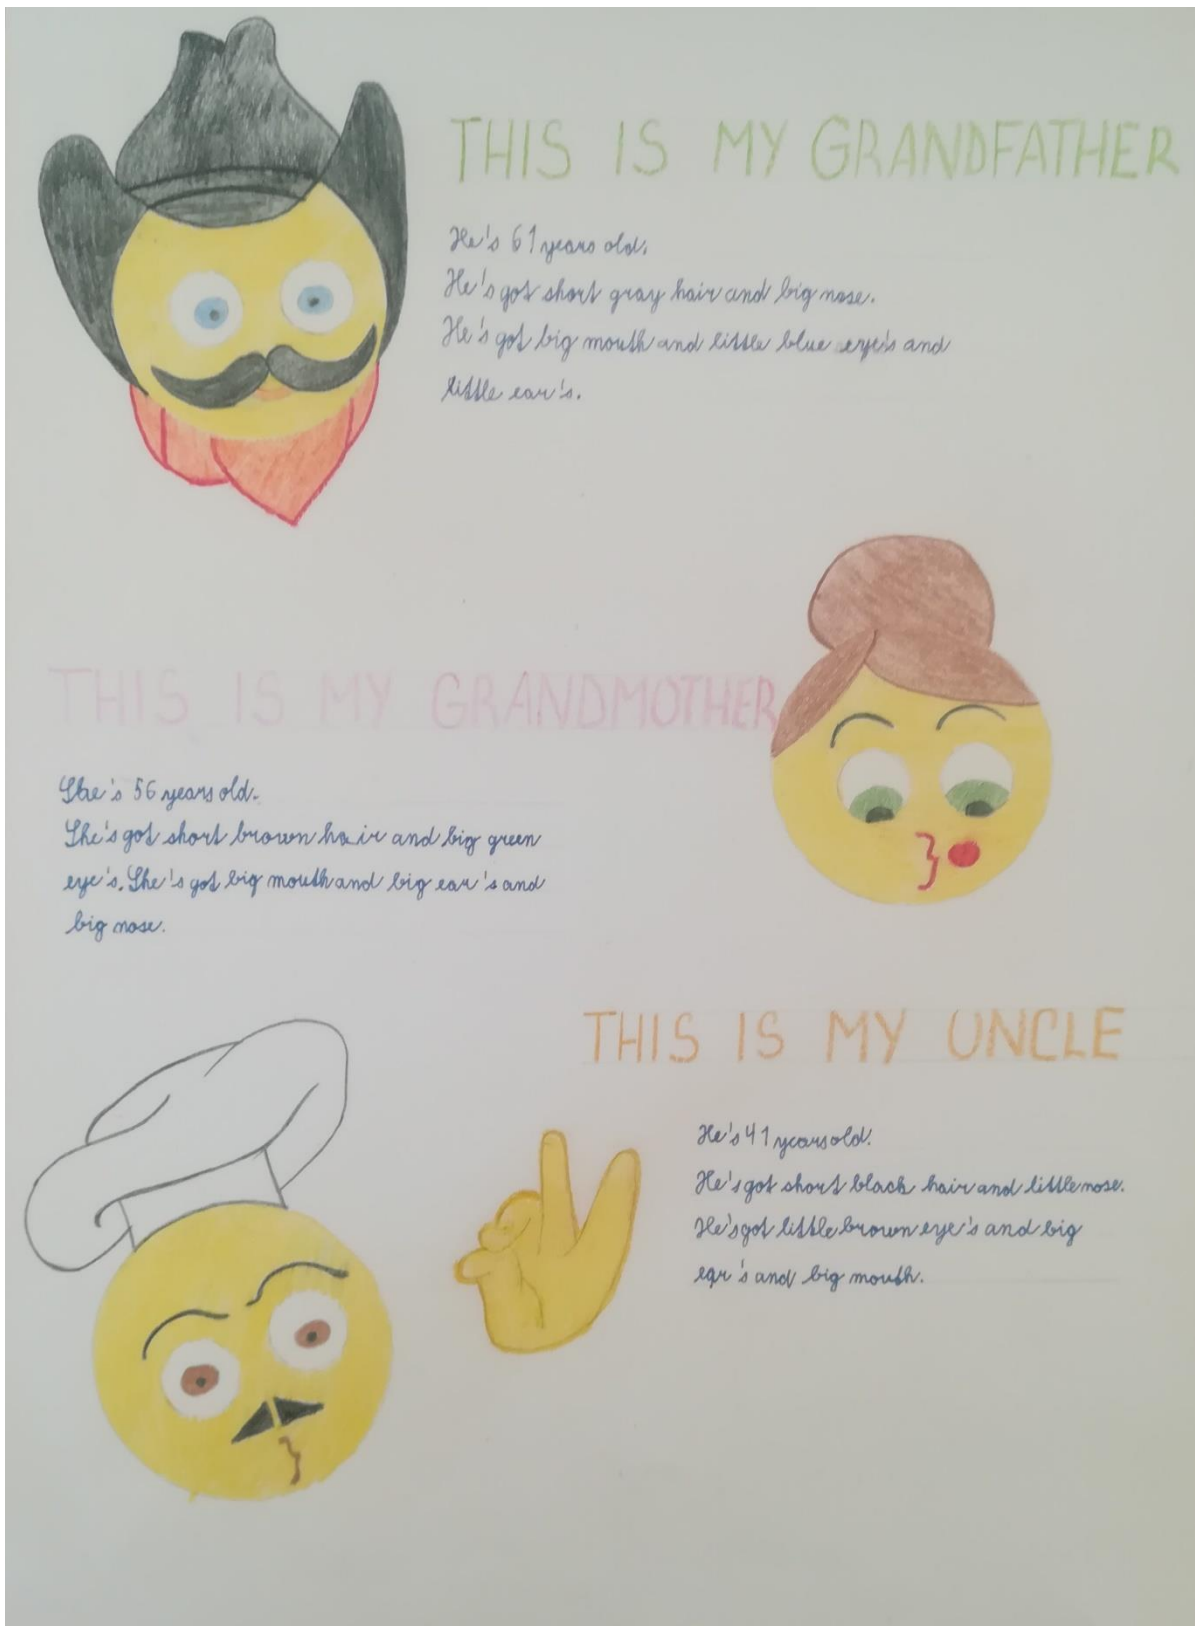 THIS IS MY GRANDFATHER
He's 61 years old.
He's got short gray hair and big nose.
He's got big mouth and little blue eye's and
little ear's.
THIS IS MY GRANDMOTHER
She's 56 years old.
She's got short brown hair and big green
eye's. She's got big mouth and big ear's and
big nose.
THIS IS MY UNCLE
He's 41 years old.
He's got short black hair and little nose.
He's got little brown eye's and big
ear's and big mouth.